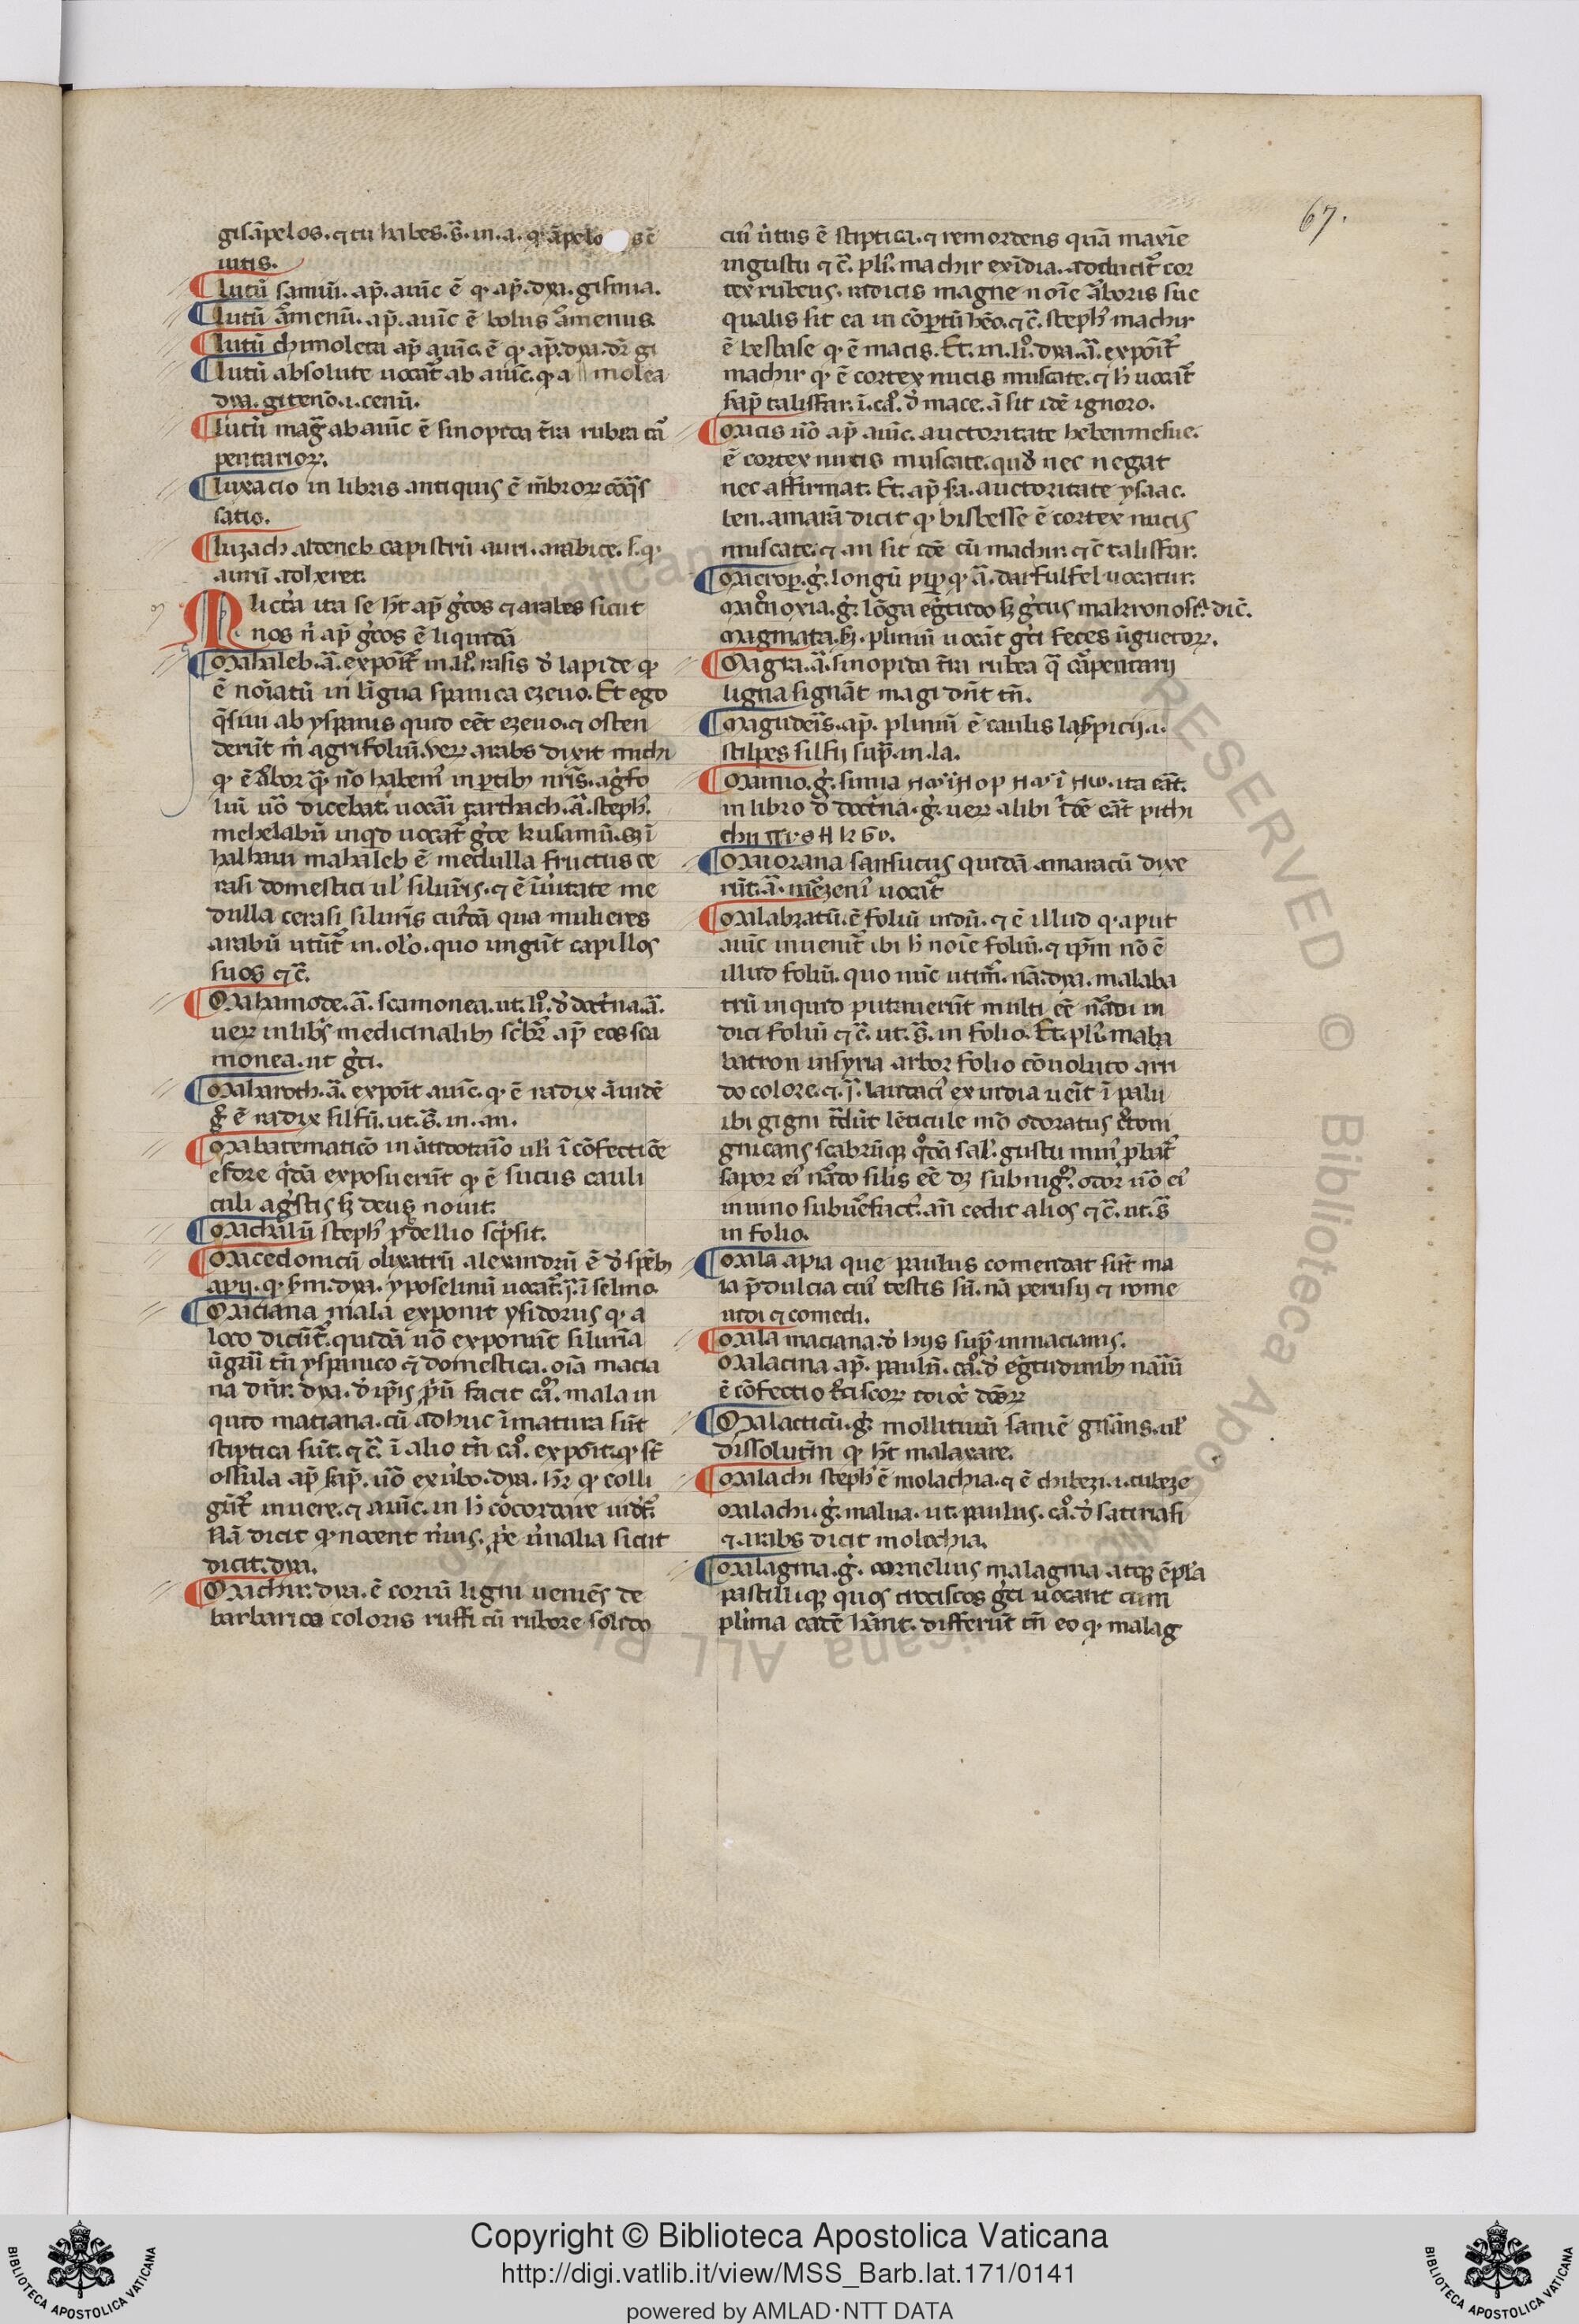 67.
gisāpelos. ⁊ tu habes. s̄. in. a. qꝫ āpelo s ē
uitis.
lutū samiū. ap̄. auic̄ ē qꝫ ap̄. dya. gisinia.
lutū ārmenū. ap̄. auic̄ ē bolus ārmenus.
lutū chimolea ap̄ auic̄. ē qꝫ ap̄. dya. dr̄ gi
lutū absolute uocat̄ ab auic̄. qꝫ a molea
dya. giteno. i. cenū.
lutū magr̄ ab auic̄ ē sinopida t̄ra rubea cā
pentarioꝝ.
luxacio in libris antiquis ē mēbroꝝ cōq̄s
satio.
luzach aldeneb capistrū auri. arabice. s. qꝫ
aurū adheret.
M licta ita se ht̄ ap̄ gͥcos ⁊ arabes sicut
nos n̄ ap̄ gͥcos ē liquida
Mahaleb. ā. expōit̄ in. li°. rasis d̄ lapide qꝫ
ē noīatū in lingua spanica ezeuo. Et ego
q̄siui ab yspanis quid eēt ezeuo. ⁊ osten
derūt m̄ agrifoliū. ueꝝ arabs dixit michi
qꝫ ē arbor q̄ nō habem̄ in ptibꝫ nr̄is. agͥfo
liū uō dicebat. uocari tarthach. ā. steph̄.
mehelabū inqd̄ uocat̄ gͥce kusamū. S̄ ī
halhaui mahaleb ē medulla fructus ce
rasi domestici ul̄ siluris. ⁊ ē ī ueritate me
dulla cerasi siluris cuidā qua mulieres
arabū utūt̄ in. olo. quo ungūt capillos
suos ⁊ c̄.
Mahamode. ā. scamonea. ut. li°. d̄ doctͥna. ā.
ueꝝ in libͥs medicinalibꝫ sc̄bit̄ ap̄ eos sca
monea. ut gͥci.
Maharoth. ā. expōit auic̄. qꝫ ē radix āiudē
ꝙ ē radix silfii. ut. s̄. in. an.
Mabatematicō in ātidotario ul̄i ī cōfectiōe
esdre q̄dā exposuerūt qꝫ ē sucus cauli
culi agͥstis sꝫ deus nouit.
Machalū steph̄ ꝓ dellio scͥpsit.
Macedonicū olixatrū alexandrū ē d̄ spēbꝫ
apij. qꝫ sm̄. dya. yposelinū uocat̄. ꝫ. ī selino.
Maciana mala exponit ysidorus qꝫ a
loco dicūt̄. quidā uō exponūt siluria
ūgariī tn̄ yspanico ⁊ domestica. oīa macia
na dn̄r. dya. d̄ ipīs ꝓriū facit ca°. mala in
quid maciana. cū adhuc īmatura sūt
stiptica sūt. ⁊ c̄. ī alio tn̄ ca°. expōit. qꝫ st̄
ossula ap̄ sap̄. uō ex ūbo. dya. hr̄ qꝫ colli
gūt̄ in uere. ⁊ auic̄. in h̄ cōcordare uidet̄.
Nā dicit qꝫ nocent n̄uis. ꝓpe uͥnalia sicut
dicit. dya.
Machir. dya. ē coriū ligni ueniēs de
barbarica coloris ruffi cū rubore solido
cui̓ uͥtus ē stiptica. ⁊ remordens quā maxīe
in gustu ⁊ c̄. pli̓. machir ex īdia. adducit̄ cor
tex rubeus. radicis magne noīe arboris sue
qualis sit ea in cōpertū hēo. ⁊ c̄. steph̄ machir
ē besbase qꝫ ē macis. Et. in. li°. dya. ā. expōit̄
machir qꝫ ē cortex nucis muscate. ⁊ h̄ uocāt̄
sap̄ talisfar. ī. ca°. d̄ mace. ā sit idē ignoro.
Macis uō ap̄ auic̄. auctoritate hebenmesue.
ē cortex nucis muscate. qud̄ nec negat
nec affirmat. Et. ap̄ sa. auctoritate ysaac.
ben. amarā dicit qꝫ bisbesse ē cortex nucis
muscate. ⁊ an sit idē cū machir. ⁊ c̄ talisfar.
Macroꝑ. gͥ. longū piꝑ qꝫ ā. darfulfel uocatur.
Macͦnoxia. gͥ. lōga egͥtudo sꝫ gͥcus makronosi̓. dic̄.
Magmata. sꝫ. pliniū uocāt gͥci feces ūguetoꝝ.
Magra. ā. sinopida t̄ra rubea q̄ cāpentarij
ligna signāt magi dn̄t tn̄.
Magudeis̄. ap̄. pliniū ē caulis laspicij. i.
stilpes silfij sup̄. in. la.
Mamio. gͥ. simia ita eāt.
in libro d̄ doctͥna. gͥ. ueꝝ alibi īdē eāt pithi
chii
Maiorana sansucus quidā amaracū dixe
rūt. ā. mēzeni̓ uocāt̄
Malabratū. ē foliū indū. ⁊ ē illud qꝫ aput
auic̄ inuenit̄ ibi h̄ noīe foliū. ⁊ ipm̄ nō ē
illud foliū. quo nūc utimr̄. nā. dya. malaba
trū inquid putauerūt multi eē nardi in
dici foliū ⁊ c̄. ut. s̄. in folio. Et. pli̓. maba
batron in syria arbor folio cōuoluto ari
do colore. ⁊. ꝫ. laudaci̓ ex india ueīt ī palu
ibi gigni tradūt lēticule mō odoratus crͦcom
gnicans scabrūqꝫ q̄dā sali̓. gustu mini̓ ꝓbat̄
sapor ei̓ nardo silis eē dꝫ subnigͦ. odor uō ei̓
in uino subuēfact̄. an̄ cedit alios ⁊ c̄. ut. s̄
in folio.
Mala apia que paulus comendat sūt ma
la p̄dulcia cui̓ testis sū. nā perusij ⁊ rome
uidi ⁊ comedi.
Mala maciana. d̄ hijs sup̄ in macianis.
Malacina ap̄. paulū. ca°. d̄ egͥtudinibꝫ nariū
ē cōfectio tͦciscoꝝ
Malacticū. gͥ. mollitiuū saniē gͥsans. ul̄
dissolutīn qꝫ ht̄ malaxare.
Malachi steph̄ ē molachia. ⁊ ē chibezi. i. cubeze
Malachi. gͥ. malua. ut. paulus. ca°. d̄ satiriasi
⁊ arabs dicit molochia.
Malagma. gͥ. cornelius malagma atqꝫ ēpla
pastilliqꝫ quos trociscos gͥci uocant cum
plͥima eadē hāant. differūt tn̄ eo qꝫ malag
Copyright © Biblioteca Apostolica Vaticana
http://digi.vatlib.it/view/MSS_Barb.lat.171/0141
powered by AMLAD·NTT DATA